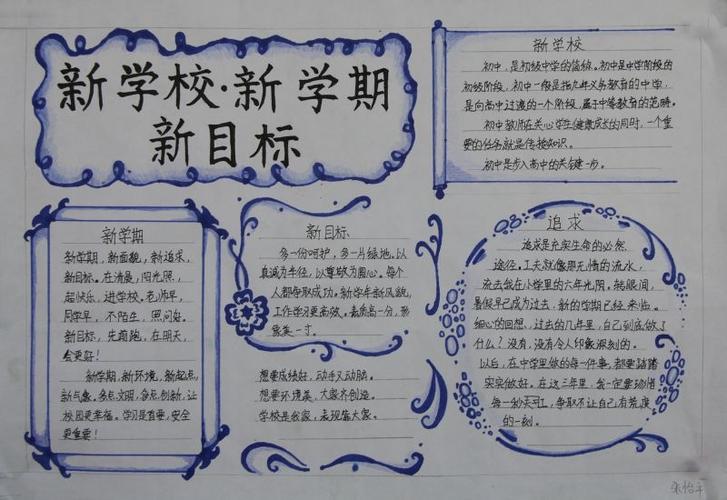 新学校·新学期
新目标
新学校
初中,是初级中学的简称。初中是中学阶段的
初级阶段,初中一般是指九年义务教育的中学,
是向高中过渡的一个阶段,属于中等教育的范畴。
初中教师在关心学生健康成长的同时,一个重
要的任务就是传授知识。
初中是步入高中的关键一步。
新学期
新学期,新面貌,新追求,
新目标。在清晨,阳光照,
起快乐,进学校。老师早,
同学早,不陌生,照问好。
新目标,先起跑,在明天,
会更好!
新学期,新环境,新起点,
新气象,多点文明,多点创新,让
校园更幸福。学习是首要,安全
更重要!
新目标
多一份呵护,多一片绿地。以
真诚为半径,以尊敬为圆心。每个
人都争取成功。新学年新风貌,
工作学习更高效。素质高一分,形
象美一寸。
想要成绩好,动手又动脑。
想要环境美,大家齐创造。
学校是我家,表现靠大家。
追求
追求是充实生命的必然
途径。工夫就像那无情的流水,
流去我在小学里的六年光阴。转眼间,
暑假早已成为过去,新的学期已经来临。
细心的回想,过去的几年里,自己到底做了
什么?没有,没有令人印象深刻的。
以后,在中学里做的每一件事,都要踏踏
实实做好。在这三年里,我一定要珍惜
每一秒天可,争取不让自己有荒废
的一刻。
张怡